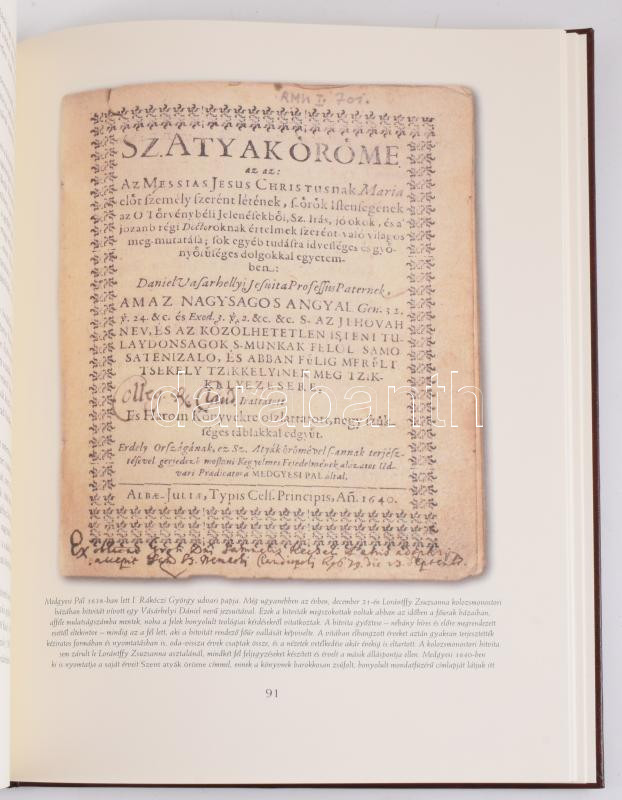 RMK I. 701.
SZ. ATYAK ÖRÖME
az az:
AZ MESSIAS JESUS CHRISTUSnak Maria
előt személy szerént létének, s örök Istenségének
az O Törvénybéli Jelenésekből, Sz. Irás, jó okok, és a'
józanb régi Doctoroknak értelmek szerént való világos
meg-mutatása; sok egyéb tudásra idvességes és gyö-
nyörüséges dolgokkal egyetem-
ben.:
Daniel Vasárhellyi Jesuita Professus Paternek,
AMAZ NAGYSAGOS ANGYAL Gen. 32.
ỳ. 24. &c. és Exod. 3. ỳ. 2. &c. &c. S. AZ JEHOVAH
NEV, ES AZ KÖZÖLHETETLEN ISTENI TU-
LAYDONSAGOK S-MUNKAK FELÖL SAMO-
SATENIZALO, ÉS ABBAN FÜLIG MERÜLT
TSEKÉLY TZIKKELYINEK MEG TZIK-
KELYEZESERE,
Irattatot
Es Három Könyvekre oszlattatott, negy éköl-
séges táblakkal edgyüt.
Erdély Országának, ez Sz. Atyák örömével s annak terjesz-
tésével gerjedező mostani Kegyelmes Fejedelmének alázatos Ud-
vari Prædicatora MEDGYESI PAL által.
ALBÆ-JULIÆ, Typis Cels. Principis, Añ. 1640.
darabanth
Medgyesi Pál 1638-ban lett I. Rákóczi György udvari papja. Még ugyanebben az évben, december 21-én Lorántffy Zsuzsanna kolozsmonostori
házában hitvitát vívott egy Vásárhelyi Dániel nevű jezsuitával. Ezek a hitviták megszokottak voltak abban az időben a főurak házaiban,
afféle mulatságszámba mentek, noha a felek bonyolult teológiai kérdésekről vitatkoztak. A hitvita győztese – néhány híres és előre megrendezett
esettől eltekintve – mindig az a fél lett, aki a hitvitát rendező főúr vallását képviselte. A vitában elhangzott érveket aztán gyakran terjesztették
kéziratos formában és nyomtatásban is, oda-vissza érvek csaptak össze, és a nézetek vetélkedése akár évekig is eltartott. A kolozsmonostori hitvita
sem zárult le Lorántffy Zsuzsanna asztalánál, mindkét fél feljegyzéseket készített és érvelt a másik álláspontja ellen. Medgyesi 1640-ben
ki is nyomtatja a saját érveit Szent atyák öröme címmel, ennek a könyvnek barokkosan zsúfolt, bonyolult mondatfüzérű címlapját látjuk itt
91